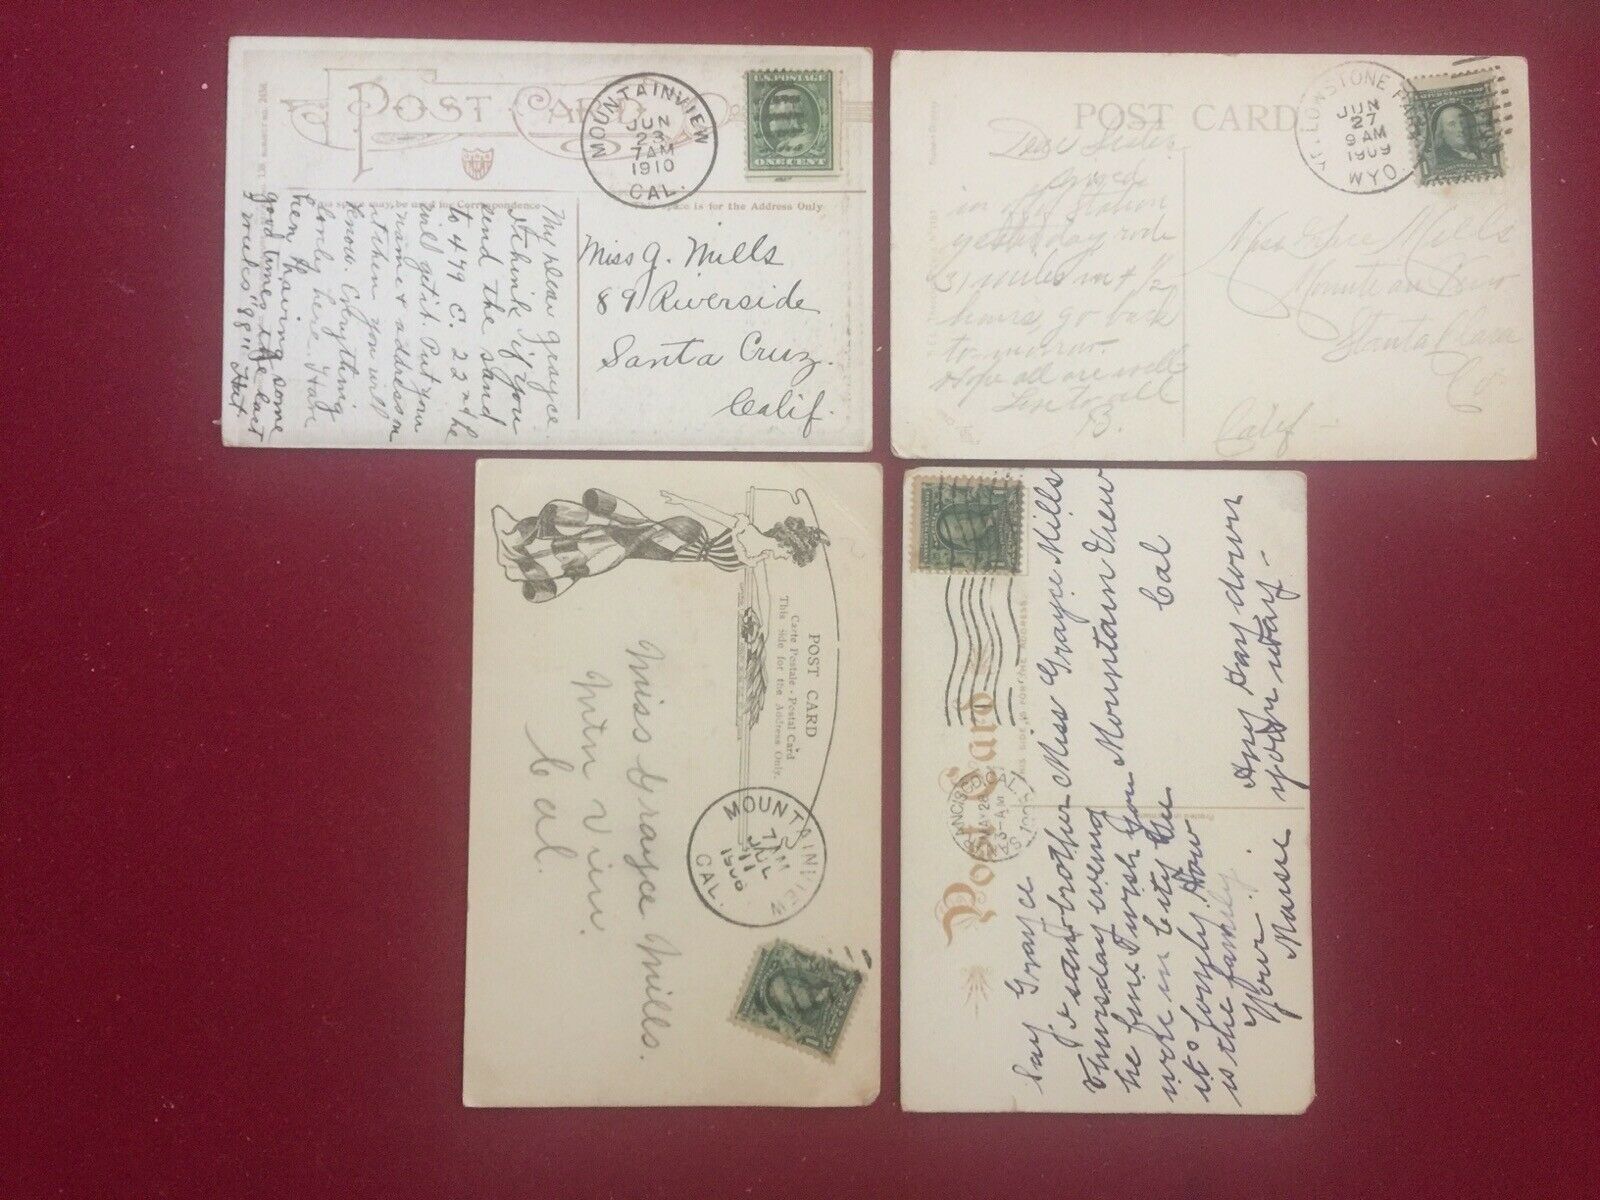 POST CARD
MOUNTAINVIEW
JUN
23
7 AM
1910
CAL.
U.S. POSTAGE
ONE CENT
This space may be used for Correspondence
This space is for the Address Only
My Dear Grayce.
I think if you
send the sand
to 449 E. 22nd he
will get it. Put your
name & address on
it then you will
know. Everything
lonely here. Ham
hen having some
good times the last
2 weeks "88" Hat
Miss G. Mills
89 Riverside
Santa Cruz.
Calif.
POST CARD
YELLOWSTONE PARK
JUN
27
9 AM
1909
WYO.
Dear Sister
Arrived
in station
yesterday rode
31 miles in 4 1/2
hours go back
to morrow.
Hope all are well
Love to all
B.
Miss Grace Mills
Mountain View
Santa Clara
Co
Calif
POST CARD
Carte Postale - Postal Card
This Side for the Address Only.
Miss Grayce Mills.
Mtn View.
Cal.
MOUNTAINVIEW
7 AM
JUL
11
CAL.
Post Card
THIS SIDE IS FOR THE ADDRESS.
MAY 28
3-AM
Miss Grayce Mills
Mountain View
Cal
Say Grayce
I saw brother
Thursday evening
he fine I wish you
were in City
it's lonely. How
is the family.
Your
Any day down
your way-